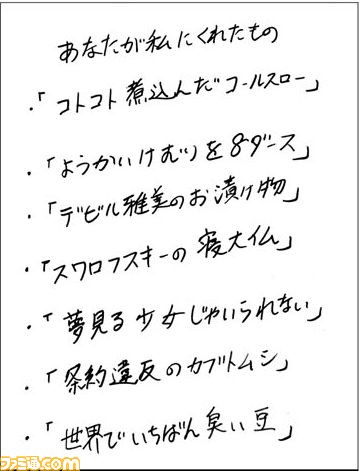 あなたが私にくれたもの
・「コトコト煮込んだコールスロー」
・「ようかいけむりを8ダース」
・「デビル雅美のお漬け物」
・「スワロフスキーの寝大仏」
・「夢見る少女じゃいられない」
・「条約違反のカブトムシ」
・「世界でいちばん臭い豆」
ファミ通.com